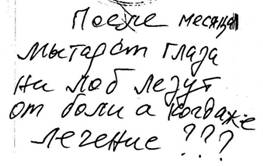 После месяца
мытарств глаза
на лоб лезут
от боли а когда же
лечение ???